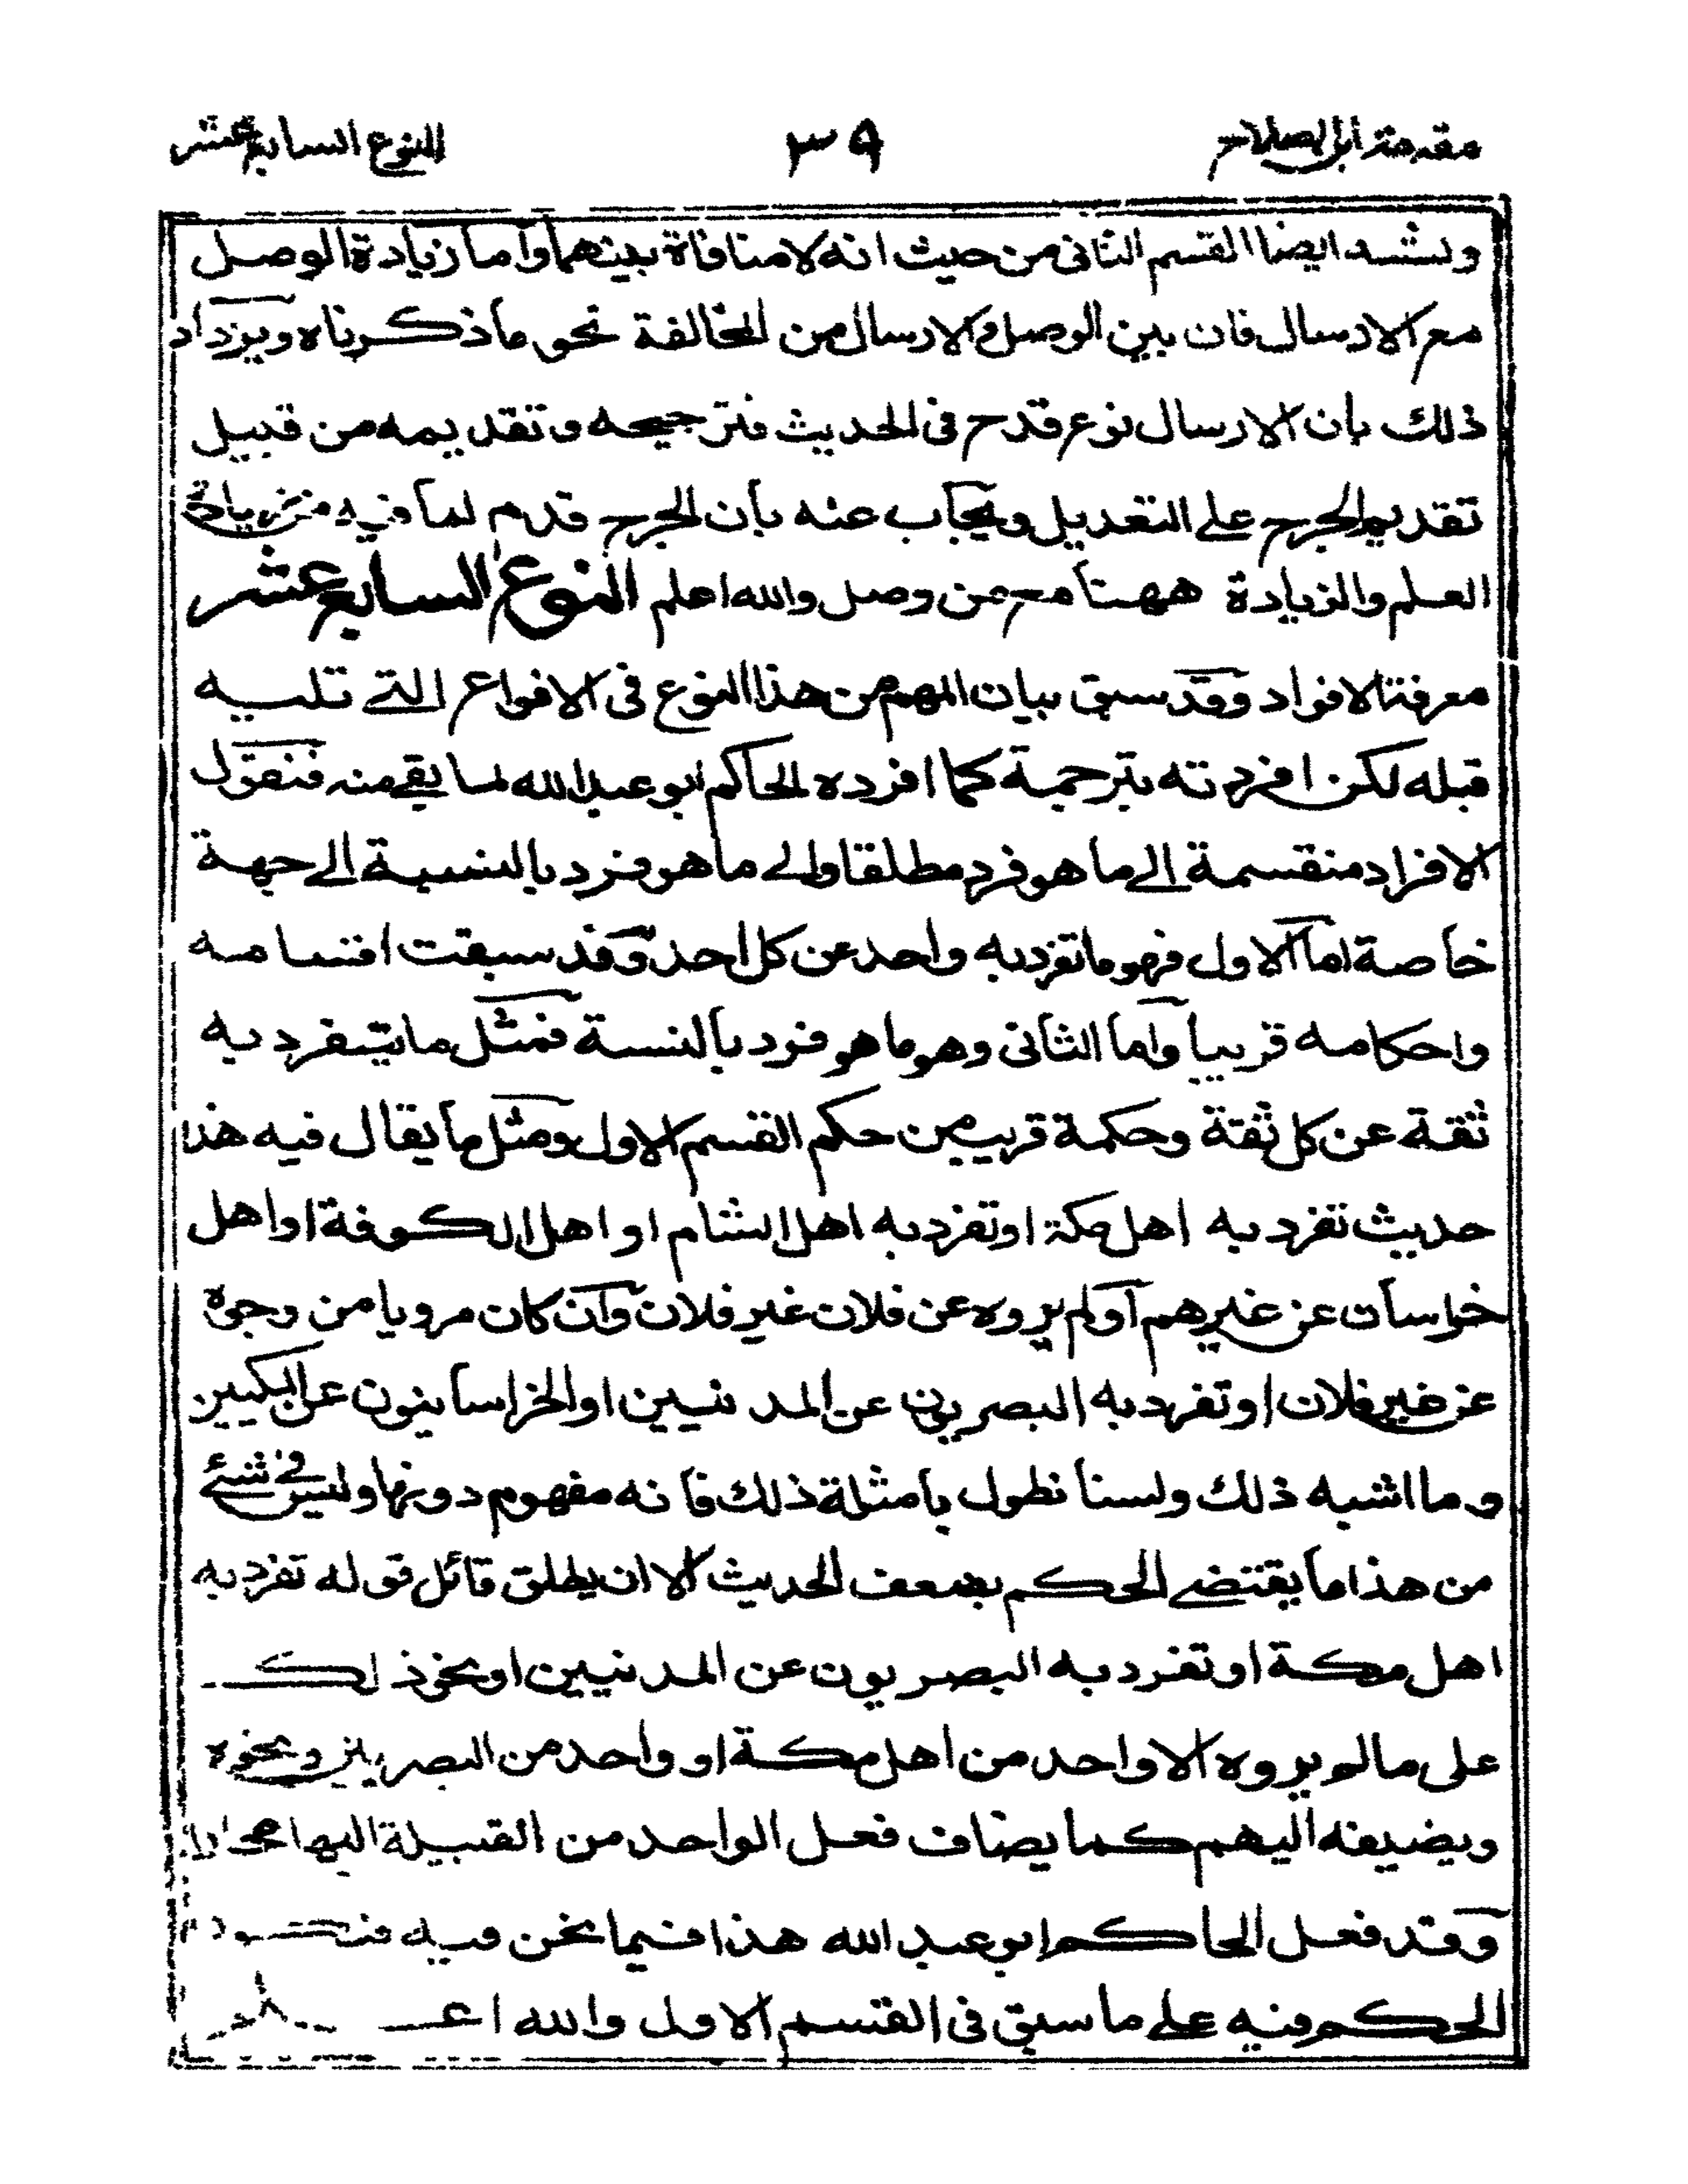 مقدمة ابن الصلاح
٣٩
النوع السابع عشر
ويشبه ايضا القسم الثانى من حيث انه لا منافاة بينهما واما زيادة الوصل
مع الارسال فان بين الوصل والارسال من المخالفة نحو ما ذكرناه ويزداد
ذلك بان الارسال نوع قدح فى الحديث فترجيحه وتقديمه من قبيل
تقديم الجرح على التعديل ويجاب عنه بان الجرح قدم لما فيه من زيادة
العلم والزيادة ههنا مع من وصل والله اعلم النوع السابع عشر
معرفة الافراد وقد سبق بيان المهم من هذا النوع فى الانواع التے تليه
قبله لكن افردته بترجمة كما افرده الحاكم ابو عبد الله لما بقے منه فنقول
الافراد منقسمة الے ما هو فرد مطلقا والے ما هو فرد بالنسبة الے جهة
خاصة اما الاول فهو ما تفرد به واحد عن كل احد وقد سبقت اقسامه
واحكامه قريبا واما الثانى وهو ما هو فرد بالنسبة فمثل ما يتفرد به
ثقة عن كل ثقة وحكمة قريب من حكم القسم الاول ومثل ما يقال فيه هذا
حديث تفرد به اهل مكة او تفرد به اهل الشام او اهل الكوفة او اهل
خراسان عن غيرهم او لم يروه عن فلان غير فلان وان كان مرويا من وجوه
عن غير فلان او تفرد به البصريون عن المدنيين او الخراسانيون عن المكيين
وما اشبه ذلك ولسنا نطول بامثلة ذلك فانه مفهوم دونها وليس فے شئے
من هذا ما يقتضے الحكم بضعف الحديث الا ان يطلق قائل قوله تفرد به
اهل مكة او تفرد به البصريون عن المدنيين او نحو ذلك
على ما لم يروه الا واحد من اهل مكة او واحد من البصريين ونحوه
ويضيفه اليهم كما يضاف فعل الواحد من القبيلة اليها مجازا
وقد فعل الحاكم ابو عبد الله هذا فيما نحن فيه
الحكم فيه علے ما سبق فى القسم الاول والله